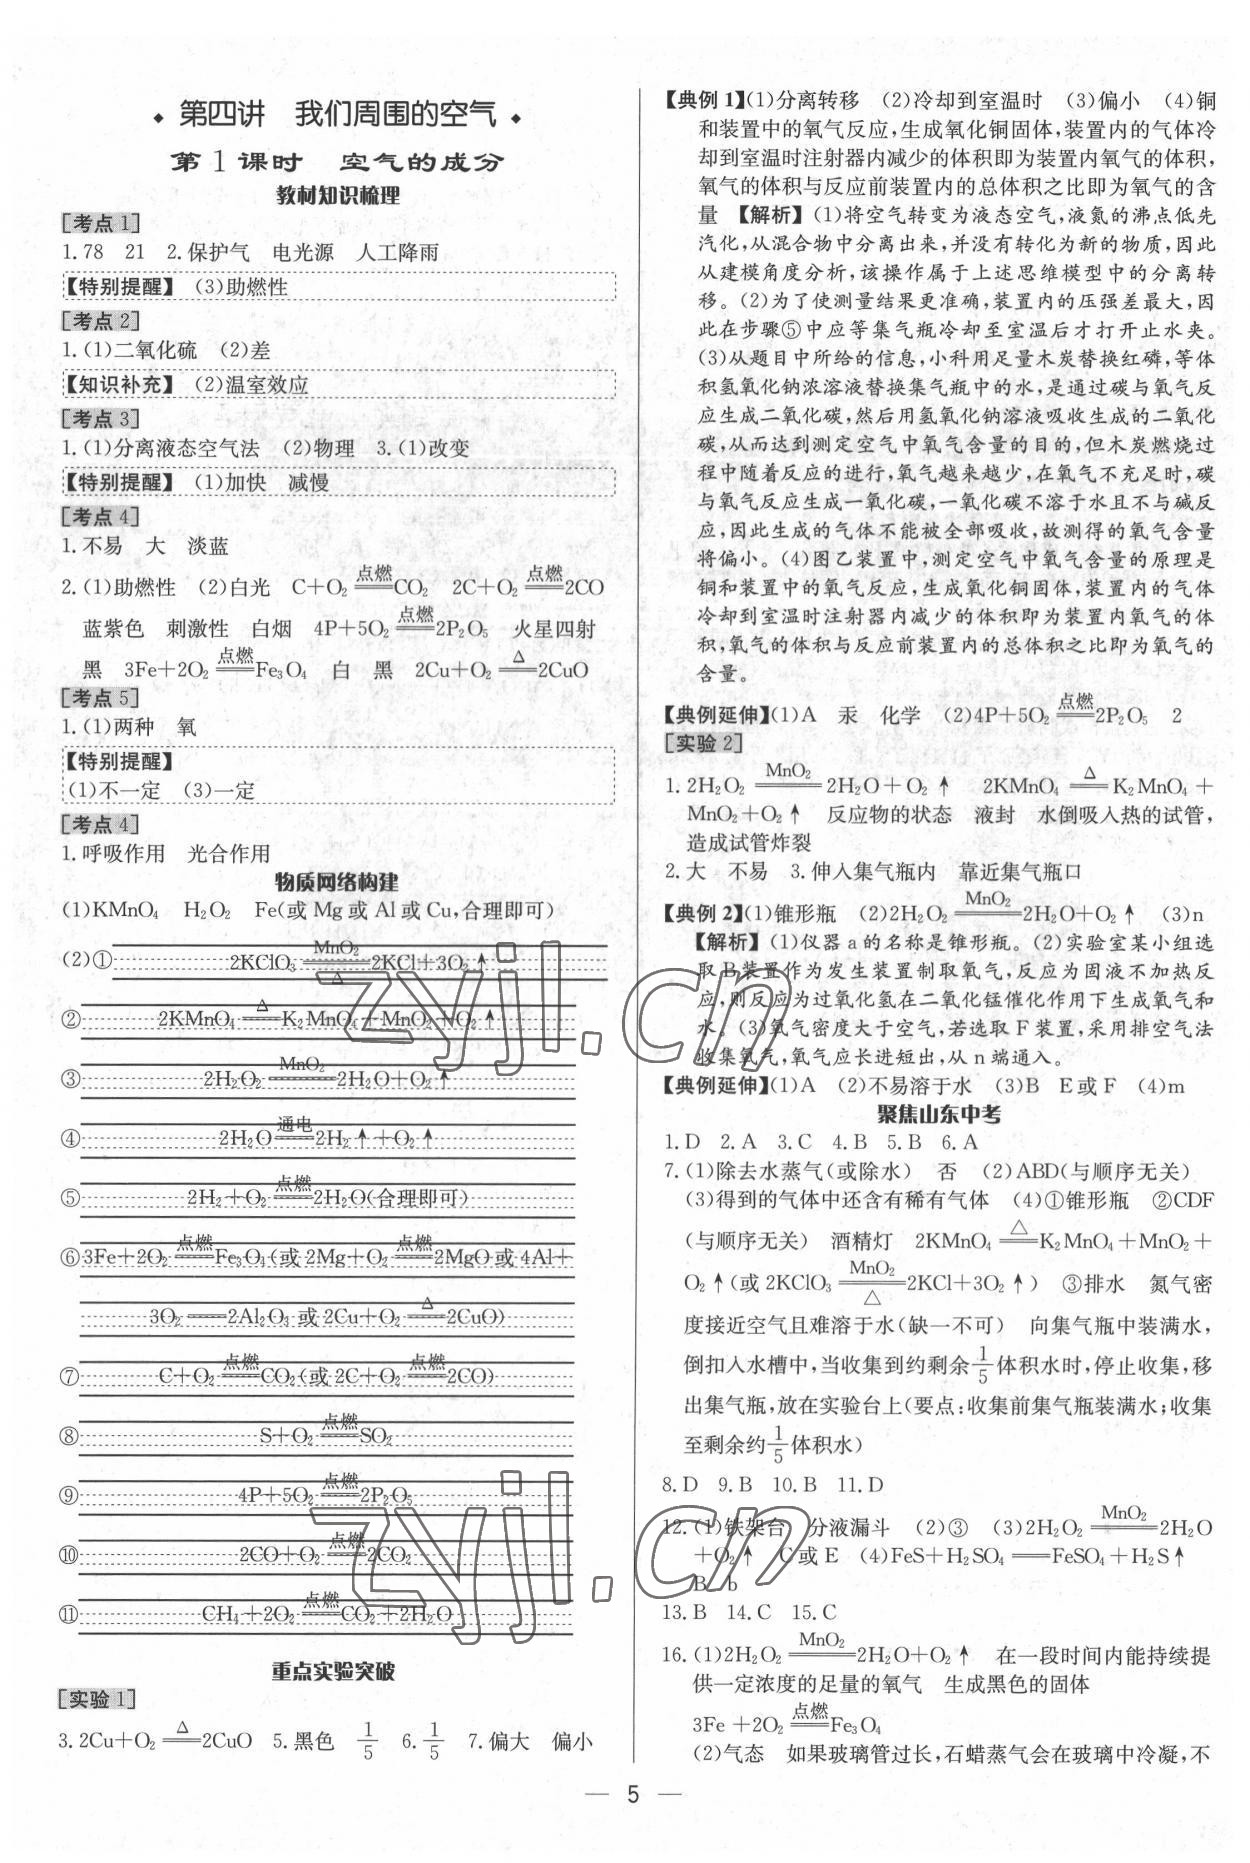 第四讲 我们周围的空气
第1课时 空气的成分
教材知识梳理
[考点1]
1.78 21 2.保护气 电光源 人工降雨
【特别提醒】 (3)助燃性
[考点2]
1.(1)二氧化硫 (2)差
【知识补充】 (2)温室效应
[考点3]
1.(1)分离液态空气法 (2)物理 3.(1)改变
【特别提醒】 (1)加快 减慢
[考点4]
1.不易 大 淡蓝
2.(1)助燃性 (2)白光 C+O₂ 点燃═══ CO₂ 2C+O₂ 点燃═══ 2CO
蓝紫色 刺激性 白烟 4P+5O₂ 点燃═══ 2P₂O₅ 火星四射
黑 3Fe+2O₂ 点燃═══ Fe₃O₄ 白 黑 2Cu+O₂ △═══ 2CuO
[考点5]
1.(1)两种 氧
【特别提醒】
(1)不一定 (3)一定
[考点4]
1.呼吸作用 光合作用
物质网络构建
(1)KMnO₄ H₂O₂ Fe(或Mg或Al或Cu,合理即可)
(2)① 2KClO₃ MnO₂═══△ 2KCl+3O₂↑
② 2KMnO₄ △═══ K₂MnO₄+MnO₂+O₂↑
③ 2H₂O₂ MnO₂═══ 2H₂O+O₂↑
④ 2H₂O 通电═══ 2H₂↑+O₂↑
⑤ 2H₂+O₂ 点燃═══ 2H₂O(合理即可)
⑥ 3Fe+2O₂ 点燃═══ Fe₃O₄(或2Mg+O₂ 点燃═══ 2MgO或4Al+
3O₂═══2Al₂O₃或2Cu+O₂ △═══ 2CuO)
⑦ C+O₂ 点燃═══ CO₂(或2C+O₂ 点燃═══ 2CO)
⑧ S+O₂ 点燃═══ SO₂
⑨ 4P+5O₂ 点燃═══ 2P₂O₅
⑩ 2CO+O₂ 点燃═══ 2CO₂
⑪ CH₄+2O₂ 点燃═══ CO₂+2H₂O
重点实验突破
[实验1]
3.2Cu+O₂ △═══ 2CuO 5.黑色 1/5 6.1/5 7.偏大 偏小
【典例1】(1)分离转移 (2)冷却到室温时 (3)偏小 (4)铜
和装置中的氧气反应,生成氧化铜固体,装置内的气体冷
却到室温时注射器内减少的体积即为装置内氧气的体积,
氧气的体积与反应前装置内的总体积之比即为氧气的含
量 【解析】(1)将空气转变为液态空气,液氮的沸点低先
汽化,从混合物中分离出来,并没有转化为新的物质,因此
从建模角度分析,该操作属于上述思维模型中的分离转
移。(2)为了使测量结果更准确,装置内的压强差最大,因
此在步骤⑤中应等集气瓶冷却至室温后才打开止水夹。
(3)从题目中所给的信息,小科用足量木炭替换红磷,等体
积氢氧化钠浓溶液替换集气瓶中的水,是通过碳与氧气反
应生成二氧化碳,然后用氢氧化钠溶液吸收生成的二氧化
碳,从而达到测定空气中氧气含量的目的,但木炭燃烧过
程中随着反应的进行,氧气越来越少,在氧气不充足时,碳
与氧气反应生成一氧化碳,一氧化碳不溶于水且不与碱反
应,因此生成的气体不能被全部吸收,故测得的氧气含量
将偏小。(4)图乙装置中,测定空气中氧气含量的原理是
铜和装置中的氧气反应,生成氧化铜固体,装置内的气体
冷却到室温时注射器内减少的体积即为装置内氧气的体
积,氧气的体积与反应前装置内的总体积之比即为氧气的
含量。
【典例延伸】(1)A 汞 化学 (2)4P+5O₂ 点燃═══ 2P₂O₅ 2
[实验2]
1.2H₂O₂ MnO₂═══ 2H₂O+O₂↑ 2KMnO₄ △═══ K₂MnO₄+
MnO₂+O₂↑ 反应物的状态 液封 水倒吸入热的试管,
造成试管炸裂
2.大 不易 3.伸入集气瓶内 靠近集气瓶口
【典例2】(1)锥形瓶 (2)2H₂O₂ MnO₂═══ 2H₂O+O₂↑ (3)n
【解析】(1)仪器a的名称是锥形瓶。(2)实验室某小组选
取B装置作为发生装置制取氧气,反应为固液不加热反
应,则反应为过氧化氢在二氧化锰催化作用下生成氧气和
水。(3)氧气密度大于空气,若选取F装置,采用排空气法
收集氧气,氧气应长进短出,从n端通入。
【典例延伸】(1)A (2)不易溶于水 (3)B E或F (4)m
聚焦山东中考
1.D 2.A 3.C 4.B 5.B 6.A
7.(1)除去水蒸气(或除水) 否 (2)ABD(与顺序无关)
(3)得到的气体中还含有稀有气体 (4)①锥形瓶 ②CDF
(与顺序无关) 酒精灯 2KMnO₄ △═══ K₂MnO₄+MnO₂+
O₂↑(或2KClO₃ MnO₂═══△ 2KCl+3O₂↑) ③排水 氮气密
度接近空气且难溶于水(缺一不可) 向集气瓶中装满水,
倒扣入水槽中,当收集到约剩余1/5体积水时,停止收集,移
出集气瓶,放在实验台上(要点:收集前集气瓶装满水;收集
至剩余约1/5体积水)
8.D 9.B 10.B 11.D
12.(1)铁架台 分液漏斗 (2)③ (3)2H₂O₂ MnO₂═══ 2H₂O
+O₂↑ C或E (4)FeS+H₂SO₄═══FeSO₄+H₂S↑
B b
13.B 14.C 15.C
16.(1)2H₂O₂ MnO₂═══ 2H₂O+O₂↑ 在一段时间内能持续提
供一定浓度的足量的氧气 生成黑色的固体
3Fe+2O₂ 点燃═══ Fe₃O₄
(2)气态 如果玻璃管过长,石蜡蒸气会在玻璃中冷凝,不
— 5 —
zyjl.cn
zyjl.cn